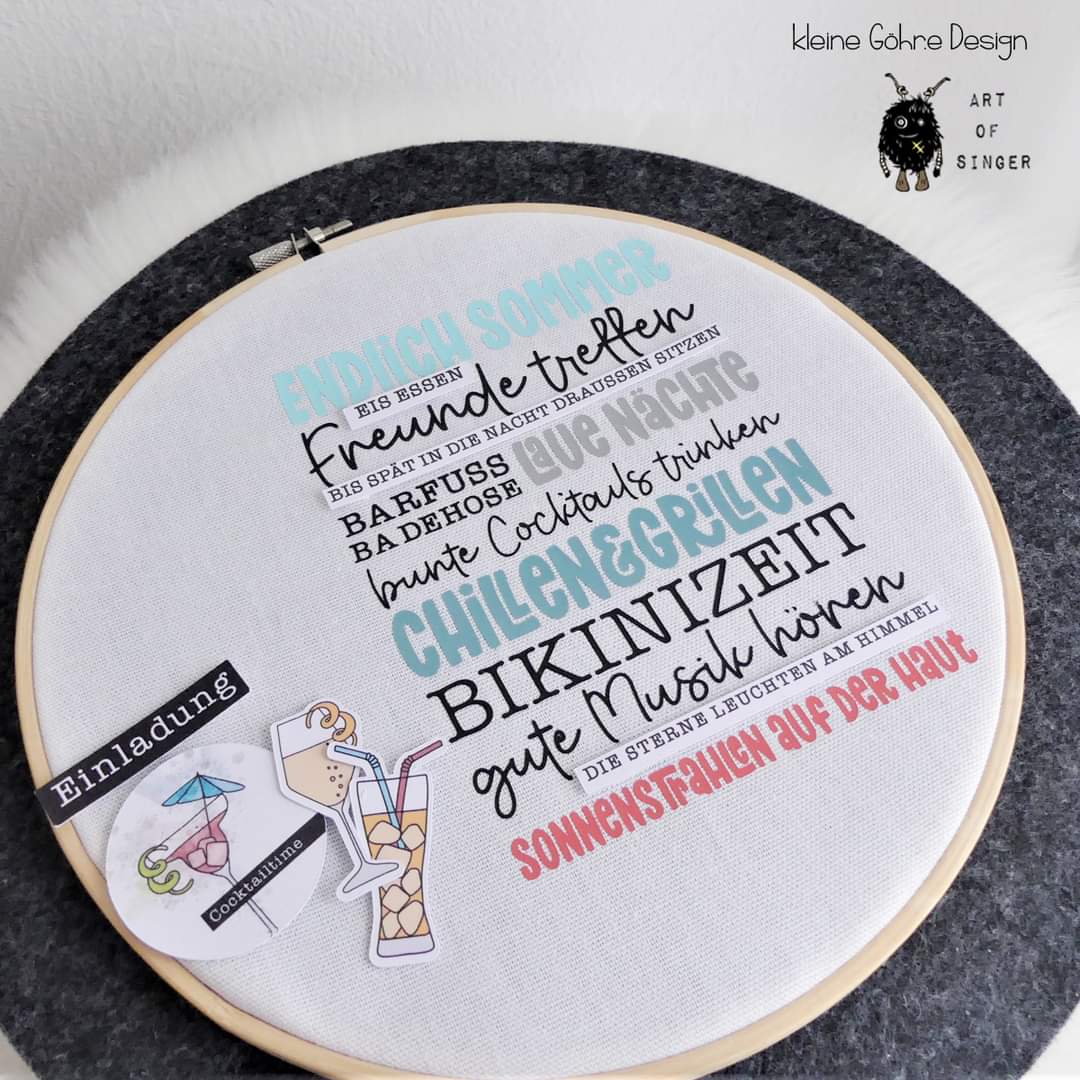 kleine Göhre Design
ART
OF
SINGER
ENDLICH SOMMER
EIS ESSEN
Freunde treffen
BIS SPÄT IN DIE NACHT DRAUSSEN SITZEN
BARFUSS
LAUE NÄCHTE
BADEHOSE
bunte Cocktails trinken
CHILLEN&GRILLEN
BIKINIZEIT
gute Musik hören
DIE STERNE LEUCHTEN AM HIMMEL
SONNENSTRAHLEN AUF DER HAUT
Einladung
Cocktailtime